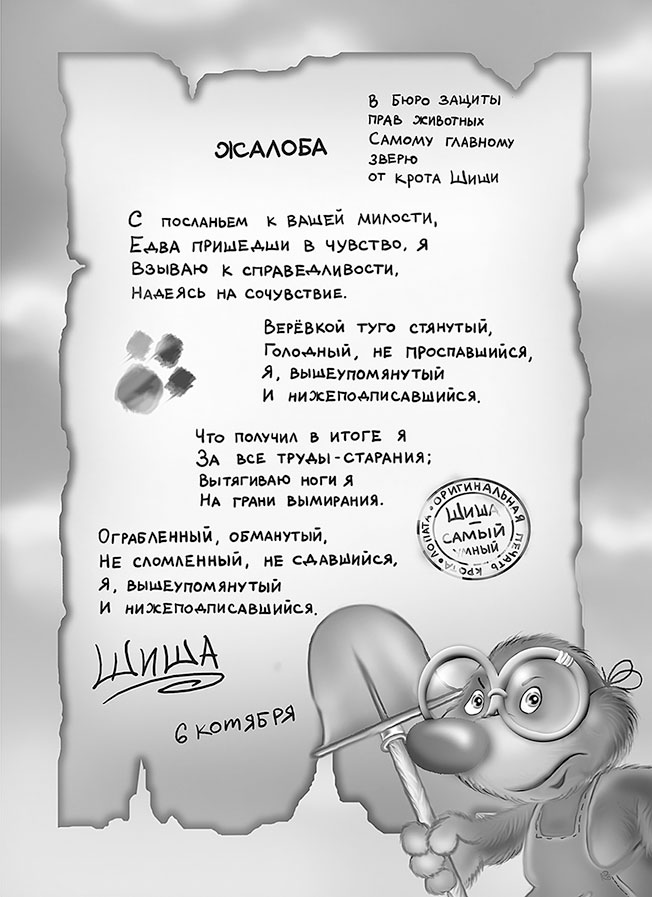 В БЮРО ЗАЩИТЫ
ПРАВ ЖИВОТНЫХ
САМОМУ ГЛАВНОМУ
ЗВЕРЮ
ОТ КРОТА ШИШИ
ЖАЛОБА
С ПОСЛАНЬЕМ К ВАШЕЙ МИЛОСТИ,
ЕДВА ПРИШЕДШИ В ЧУВСТВО, Я
ВЗЫВАЮ К СПРАВЕДЛИВОСТИ,
НАДЕЯСЬ НА СОЧУВСТВИЕ.
ВЕРЁВКОЙ ТУГО СТЯНУТЫЙ,
ГОЛОДНЫЙ, НЕ ПРОСПАВШИЙСЯ,
Я, ВЫШЕУПОМЯНУТЫЙ
И НИЖЕПОДПИСАВШИЙСЯ.
ЧТО ПОЛУЧИЛ В ИТОГЕ Я
ЗА ВСЕ ТРУДЫ-СТАРАНИЯ;
ВЫТЯГИВАЮ НОГИ Я
НА ГРАНИ ВЫМИРАНИЯ.
ОГРАБЛЕННЫЙ, ОБМАНУТЫЙ,
НЕ СЛОМЛЕННЫЙ, НЕ СДАВШИЙСЯ,
Я, ВЫШЕУПОМЯНУТЫЙ
И НИЖЕПОДПИСАВШИЙСЯ.
ОРИГИНАЛЬНАЯ ПЕЧАТЬ КРОТА • ЛОПАТА •
ШИША
САМЫЙ
УМНЫЙ
ШИША
6 КОТЯБРЯ